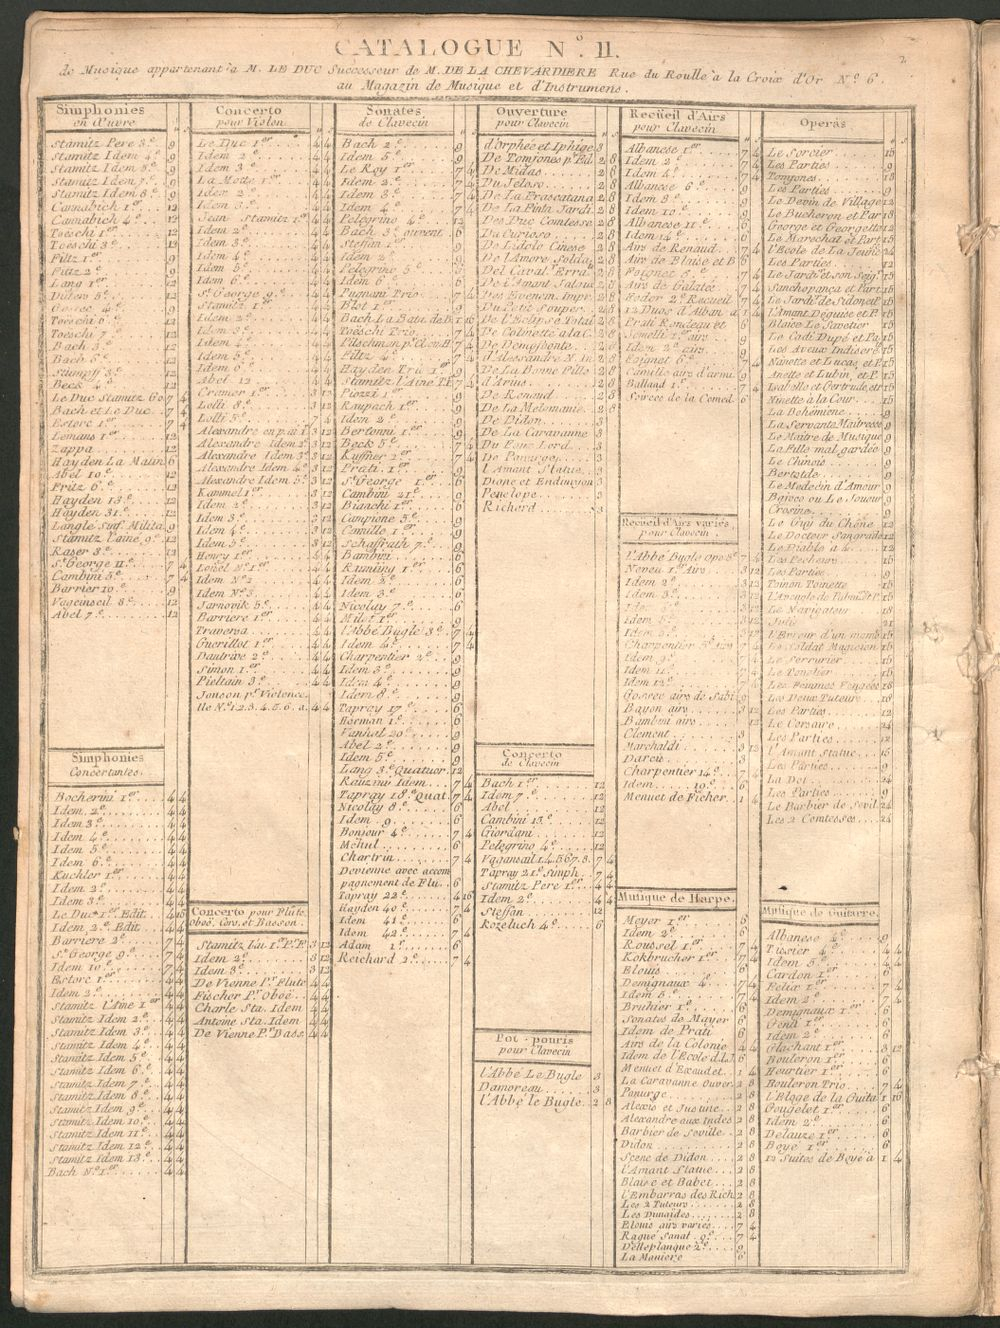 CATALOGUE N.º 11.
2
de Musique appartenant à M. LE DUC Successeur de M. DE LA CHEVARDIERE Rue du Roulle à la Croix d'Or N.º 6.
au Magazin de Musique et d'Instrumens.
Simphonies
en Œuvre
Stamitz Pere 3.e 9
Stamitz Idem 4.e 9
Stamitz Idem 5.e 9
Stamitz Idem 7.e 9
Stamitz Idem 8.e 9
Cannabich 1.er 12
Cannabich 4.e 12
Toeschi 1.er 12
Toeschi 3.e 12
Filtz 1.er 9
Filtz 2.e 9
Lang 1.er 12
Gossec 4.e
Toeschi
Bach 3.e 12
Bach 6.e
Beck 4.e 12
Le Duc Stamitz 6o 7 4
Bach et Le Duc 7 4
Estorc 1.er 7 4
Lemans 1.er 12
Zappa 12
Hayden La Maun 6
Abel 10.e 12
Fritz 6.e 12
Hayden 13.e 12
Hayden 31.e 12
Langle Sinf. Milita 9
Stamitz l'ainé 9.e 12
Raser 3.e 9
S.t George 11.e 7 4
Cambini 5.e 7 4
Barriere 10.e 9
Vagenseil 8.e 12
Abel 7.e 12
Simphonies
Concertantes.
Bocherini 1.er 4 4
Idem 2.e 4 4
Idem 3.e 4 4
Idem 4.e 4 4
Idem 5.e 4 4
Idem 6.e 4 4
Kuchler 1.er 4 4
Idem 2.e 4 4
Idem 3.e 4 4
Le Duc 1.er Edit. 4 16
Idem 2.e Edit. 4 4
Barriere 2.e 7 4
S.t George 9.e 7 4
Idem 10.e 7 4
Estorc 1.er 4 4
Idem 2.e 4 4
Stamitz l'Ainé 1.er 4 4
Stamitz Idem 2.e 4 4
Stamitz Idem 3.e 4 4
Stamitz Idem 4.e 4 4
Stamitz Idem 5.e 4 4
Stamitz Idem 6.e 4 4
Stamitz Idem 7.e 4 4
Stamitz Idem 8.e 4 4
Stamitz Idem 9.e 4 4
Stamitz Idem 10.e 4 4
Stamitz Idem 11.e 4 4
Stamitz Idem 12.e 4 4
Stamitz Idem 13.e 4 4
Bach N.º 1.er 4 4
Concerto
pour Violon
Le Duc 1.er 4 4
Idem 2.e 4 4
Idem 3.e 4 4
La Mote 1.er 4 4
Idem 2.e 4 4
Idem 3.e 4 4
Jean Stamitz 1.er 4 4
Idem 2.e 4 4
Idem 3.e 4 4
Idem 4.e 4 4
Idem 5.e 4 4
Idem 6.e 4 4
S.t George 9.e 4 4
Stamitz 1.er 4 4
Idem 2.e 4 4
Idem 3.e 4 4
Idem 4.e 4 4
Idem 5.e 4 4
Idem 6.e 4 4
Abel 12 4 4
Cramer 1.er 3 12
Lolli 8.e 3 12
Lolli 5.e 7 4
Alexandre en p.ar 1 3 12
Alexandre Idem 2.e 3 12
Alexandre Idem 3.e 3 12
Alexandre Idem 4.e 3 12
Alexandre Idem 5.e 3 12
Kammel 1.er 3 12
Idem 2.e 3 12
Idem 3.e 3 12
Idem 4.e 3 12
Idem 5.e 3 12
Henry 1.er 4 4
Lohel N.º 1.er 4 4
Idem N.º 2 4 4
Idem N.º 3 4 4
Jarnovik 5.e 4 4
Barriere 1.er 4 4
Traversa 4 4
Guerillot 1.er 4 4
Dautrive 2.e 4 4
Simon 1.er 4 4
Pieltain 3.e 4 4
Jonson p.r Violonce.
lle N.º 1. 2. 3. 4. 5. 6. a. 4 4
Concerto pour Flute,
Oboë, Cors, et Basson.
Stamitz l'ai 1.er P.F. 3 12
Idem 2.e 3 12
Idem 3.e 3 12
De Vienne P.r Flute 4 4
Fischer P.r Oboë 4 4
Charle Sta. Idem 4 4
Antoine Sta. Idem 4 4
De Vienne P.r Bass. 4 4
Sonates
de Clavecin
Bach 2.e 9
Idem 5.e 9
Le Roy 1.er 7 4
Idem 2.e 7 4
Idem 3.e 7 4
Idem 4.e 7 4
Pelegrino 4.e 12
Bach 3.e ouvent. 6
Steffan 1.er 9
Idem 2.e 9
Pelegrino 5.e
Idem 6
Pugnani Trio 7 4
Elot 1.er 9
Bach La Bata. de B. 1 16
Toeschi Trio 7 4
Filtz 4.e 7 4
Hayden Trio 1.er 9
Stamitz l'Ainé T.P. 7 4
Piozzi 1.er 9
Raupach 1.er 9
Idem 2.e 9
Bertonni 1.er 9
Beck 5.e 7 4
Kuffner 2.er 7 4
Prati 1.er 9
S.t George 1.er 6
Cambini 21.e 9
Bianchi 1.er 6
Campioni 5.e 9
Camille 1.er 9
Schaffrath 7.e 9
Bambini 6
Raminy 1.er 6
Idem 2.e 6
Idem 3.e 6
Nicolay 7.e 6
Milot 1.er 9
l'Abbé Bugle 3.e 7 4
Idem 4.e 7 4
Charpentier 2.e 9
Idem 3.e 9
Idem 4.e 9
Idem 8.e 9
Tapray 17.e 6
Herman 1.e 6
Vanhal 20.e 9
Abel 2.e 9
Idem 5.e 9
Lang 3.e Quatuor 12
Rauzini Idem 7 4
Tapray 18.e Quat. 7 4
Nicolay 8.e 6
Idem 9 6
Bonjour 4.e 7 4
Mehul 6
Chartrin 7 4
Devienne avec accom
pagnement de Flu. 6
Tapray 22.e 4 16
Hayden 40.e 7 4
Idem 41.e 6
Idem 42.e 7 4
Adam 1.e 6
Reichard 2.e 7 4
Ouverture
pour Clavecin
d'Orphée et Iphige 3
De Tomjones p.r Ed. 2 8
De Midas 2 8
Du Jeloso 2 8
De La Frascatana 2 8
De La Finta Jardi. 2 8
Des Duc Comtesse 2 8
Du Curioso 2 8
De Lidolo Cinese 2 8
De l'Amore Solda. 2 8
Del Caval. Erra. 2 8
De l'Amant Jalou 2 8
Des Evenem. Impr. 2 8
Du Petit Souper 2 8
De l'Eclipse Total 2 8
De Colinette a la C. 2 8
De Demofoonte 2 8
d'Alessandre N. In. 2 8
De La Bonne Fille 2 8
d'Arius 2 8
De Renaud 2 8
De La Melomanie 2 8
De Didon 3
De La Caravanne 3
Du Faux Lord 3
De Panurge 3
l'Amant Statue 3
Diane et Endimyon 3
Penelope 3
Richerd 3
Concerto
de Clavecin
Bach 1.er 12
Idem 7.e 12
Abel 12
Cambini 15.e 12
Giordani 12
Pelegrino 4.e 12
Vaganseil 1. 4. 5. 6. 7. 8. 7 4
Tapray 21.e Simph. 7 4
Stamitz Pere 1.er 4 4
Idem 2.e 4 4
Steffan 12
Kozeluch 4.e 6
Pot-pouris
pour Clavecin
l'Abbé Le Bugle 3
Damoreau 3
l'Abbé le Bugle 2 8
Recueil d'Airs
pour Clavecin
Albanese 1.er 7 4
Idem 2.e 7 4
Idem 4.e 7 4
Albanese 6.e 9
Idem 8.e 9
Idem 10.e 9
Albanese 11.e 6
Idem 14.e 6
Airs de Renaud 7 4
Airs de Blaise et B. 6
Foignet 5.e 7 4
Airs de Galatée 7 4
Hoder 2.e Recueil 7 4
12 Duos d'Alban. a 1 4
Prati Rondeau et 6
9
Idem 2.e airs 9
Foignet 6.e 7 4
Camille airs d'armi 9
Balland 1.er 7 4
Sources de la Comed. 6
Recueil d'Airs variés
pour Clavecin
l'Abbé Bugle Opo 8.e 7 4
Neveu 1.er Airs 3 12
Idem 2.e 3 12
Idem 3.e 3 12
3 12
Idem 5.e 3 12
3 12
Charpentier 5.e Airs 7 4
Idem 9.e 7 4
Idem 11.e 7 4
Idem 12.e 7 4
Gossec airs de Sabi 9
Bayon airs 3
Bambini airs 12
Clement 3
Marchaldi 3 12
Darcis 3
Charpentier 14.e 7 4
Idem 10.e 6
Menuet de Ficher 1 4
Musique de Harpe.
Meyer 1.er 6
Idem 2.e 6
Roussel 1.er 7 4
Kokbrucher 1.er 7 4
Elouis 6
Demignaux 4.e 7 4
Idem 5.e 7 4
Bruhier 1.er 6
Sonates de Mayer 6
Idem de Prati 6
Airs de la Colonie 4 4
Idem de l'Ecole d.l.J. 6
Menuet d'Exaudet 1 4
La Caravanne Ouver. 2 8
Panurge 2 8
Alexis et Justine 2 8
Alexandre aux Indes 2 8
Barbier de Seville 2 8
Didon 2 8
Scene de Didon 2 8
l'Amant Statue 2 8
Blaise et Babet 2 8
l'Embarras des Rich. 2 8
Les 2 Tuteurs 2 8
Les Danaïdes 2 8
Elouis airs variés 7 4
Rague Sonat. 9.e 7 4
Delleplanque 2.e 9
La Maniere 6
Operas
Le Sorcier 15
Les Parties 9
Tomjones 18
Les Parties 9
Le Devin de Village 12
Le Bucheron et Par 18
George et Georgette 12
Le Marechal et Part. 15
l'Ecole de La Jeune. 24
Les Parties 12
Le Jardi. et son Seig.r 15
Sanchopança et Part. 15
Le Jardi. de Sidon et P. 15
l'Amant Déguisé et P. 15
Blaise Le Savetier 15
Le Cadi Dupé et Pa. 15
Les Aveux Indiscre. 15
Nanette et Lucas, et P. 15
Anette et Lubin, et P. 15
Isabelle et Gertrude, etc. 15
Ninette à la Cour 15
La Bohémiene 9
La Servante Maitresse 9
Le Maitre de Musique 9
La Fille mal gardée 9
Le Chinois 9
Bertolde 9
Le Medecin d'Amour 9
Baioco ou Le Joueur 9
Crosine 9
Le Guy du Chêne 12
Le Docteur Sangrado 12
Le Diable à 4 12
Les Pecheurs 15
Les Parties 9
Toinon Toinette 15
Le Navigateur 18
Julie 21
Le Soldat Magicien 15
Le Serrurier 15
Le Tonelier 15
Les Femmes Vengées 18
Les Deux Tuteurs 18
Les Parties 12
Le Corsaire 24
Les Parties 12
l'Amant Statue 15
Les Parties 9
La Dot 24
Les Parties 9
Le Barbier de Sevil. 24
Les 2 Comtesses 24
Musique de Guitarre.
Albanese 4.e 9
Tissier 4.e 4 4
Idem 5.e 4 4
Cardon 1.er 6
Felix 1.er 7 4
Idem 2.e 7 4
Demignaux 1.er 6
Genti 1.er 6
Idem 2.e 6
Glachant 1.er 3 12
Bouleron 1.er 6
Heurtier 1.er 6
Bouleron Trio 7 4
l'Eloge de la Guita. 1 16
Gougelet 1.er 6
Idem 2.e 6
Delauze 1.er 6
Boye 1.er 6
12 Suites de Boyé a 1 4